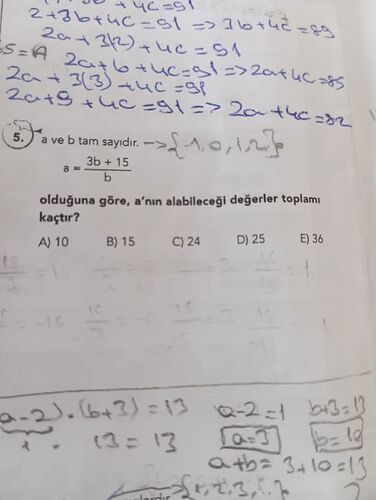 2+3b+4c=91 => 3b+4c=89
2a+3(2)+4c=91
2a+b+4c=91 => 2a+4c=85
2a+3(3)+4c=91
2a+9+4c=91 => 2a+4c=82
5. a ve b tam sayıdır. -> {-1,0,1,2}
a = 3b + 15 / b
olduğuna göre, a'nın alabileceği değerler toplamı
kaçtır?
A) 10 B) 15 C) 24 D) 25 E) 36
(a-2).(b+3)=13 a-2=1 b+3=13
1 . 13=13 a=3 b=10
a+b=3+10=13